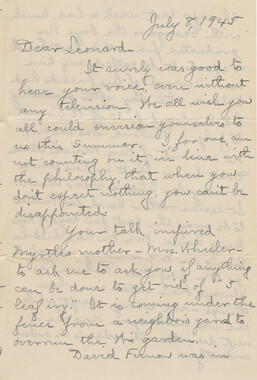 July 8, 1945
Dear Leonard—
It surely was good to
hear your voice, even without
any television. We all wish you
all could envision yourselves to
us this summer. I for one am
not counting on it, in line with
the philosophy that when you
don't expect nothing, you can't be
disappointed.
Your talk inspired
my mother—Mrs. Wheeler—
to ask me to ask you if anything
can be done to get rid of "5
leaf ivy." It is coming under the
fence from a neighbor's yard to
overrun the garden.
David was in